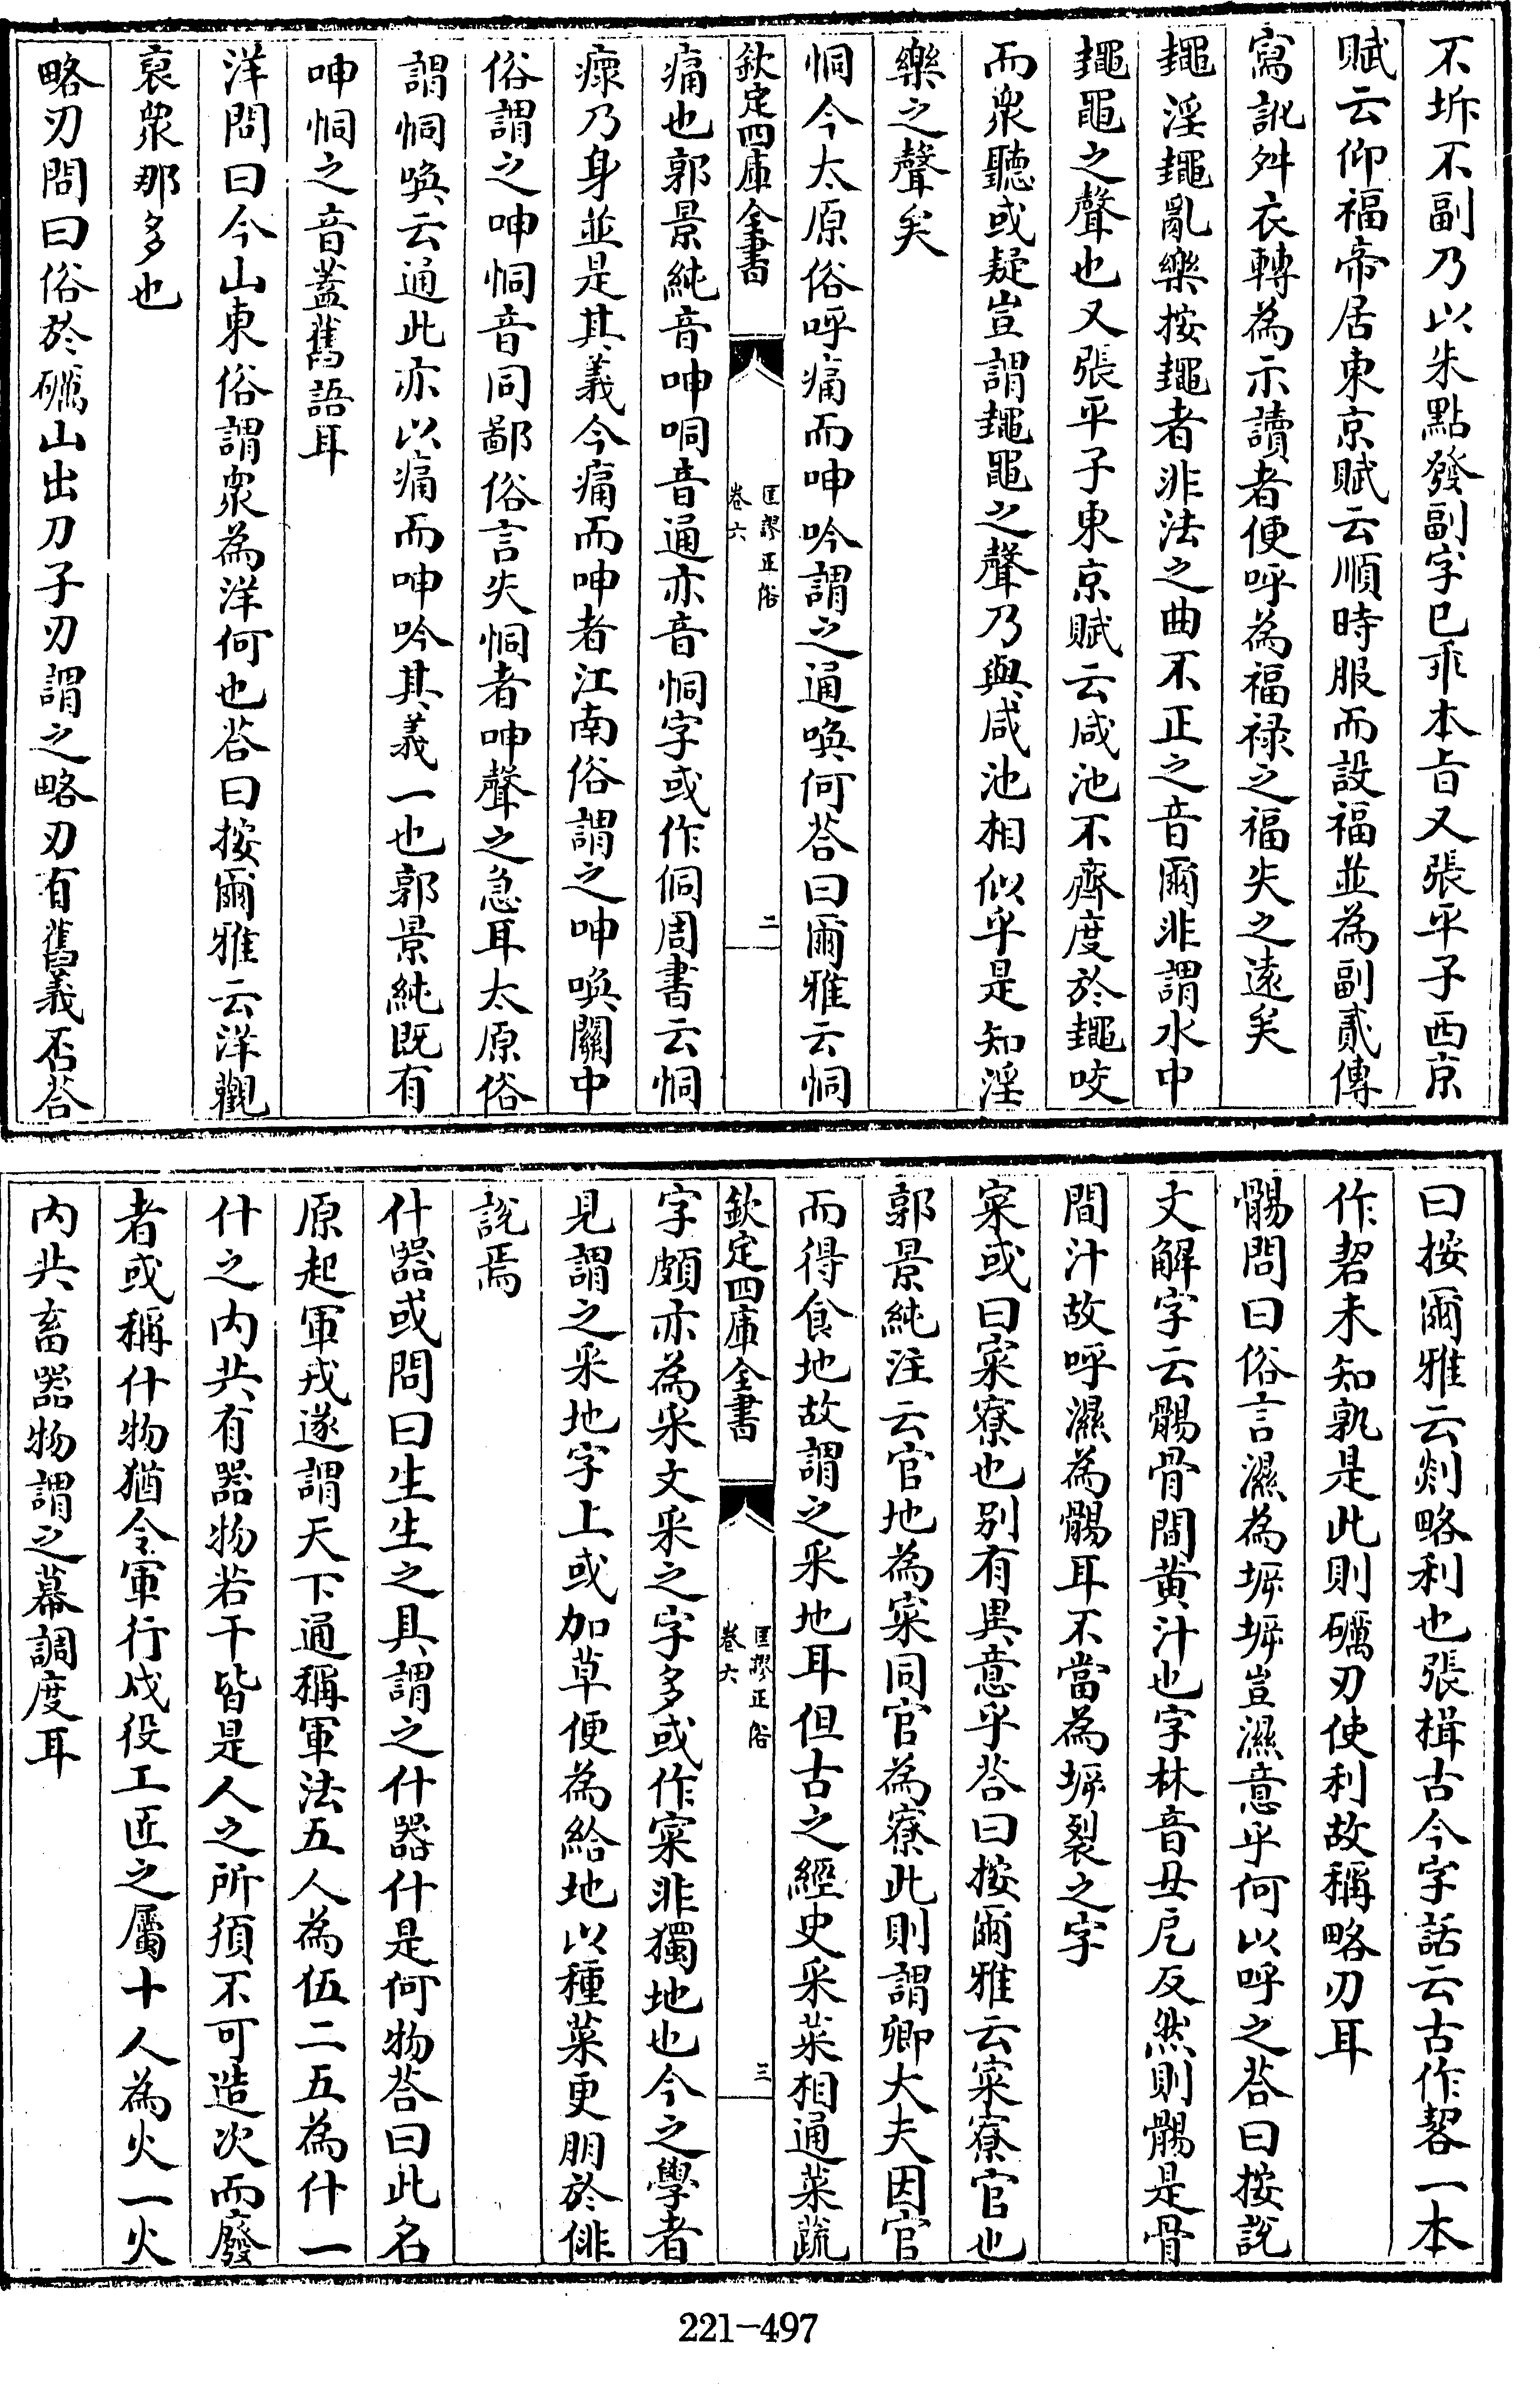 不坼不副乃以朱點發副字已乖本旨又張平子西京
賦云仰福帝居東京賦云順時服而設福並為副貳傳
寫訛舛衣轉為示讀者便呼為福祿之福失之遠矣
䵷淫䵷亂樂按䵷者非法之曲不正之音爾非謂水中
䵷黽之聲也又張平子東京賦云咸池不齊度於䵷咬
而衆聽或疑豈謂䵷黽之聲乃與咸池相似乎是知淫
樂之聲矣
恫今太原俗呼痛而呻吟謂之通喚何荅曰爾雅云恫
欽定四庫全書
匡謬正俗
卷六
二
痛也郭景純音呻哃音通亦音恫字或作侗周書云恫
瘝乃身並是其義今痛而呻者江南俗謂之呻喚關中
俗謂之呻恫音同鄙俗言失恫者呻聲之急耳太原俗
謂恫喚云通此亦以痛而呻吟其義一也郭景純既有
呻恫之音蓋舊語耳
洋問曰今山東俗謂衆為洋何也荅曰按爾雅云洋觀
裒衆那多也
略刃問曰俗於礪山出刀子刃謂之略刃有舊義否荅
曰按爾雅云剡略利也張揖古今字詁云古作䂮一本
作㓞未知孰是此則礪刃使利故稱略刃耳
䯜問曰俗言濕為㙤㙤豈濕意乎何以呼之荅曰按說
文解字云䯜骨間黄汁也字林音丑㔾反然則䯜是骨
間汁故呼濕為䯜耳不當為㙤裂之字
寀或曰寀寮也别有異意乎荅曰按爾雅云寀寮官也
郭景純注云官地為寀同官為寮此則謂卿大夫因官
而得食地故謂之采地耳但古之經史采菜相通菜蔬
欽定四庫全書
匡謬正俗
卷六
三
字頗亦為采文采之字多或作寀非獨地也今之學者
見謂之采地字上或加草便為給地以種菜更朋於俳
說焉
什器或問曰生生之具謂之什器什是何物荅曰此名
原起軍戎遂謂天下通稱軍法五人為伍二五為什一
什之内共有器物若干皆是人之所須不可造次而廢
者或稱什物猶令軍行戍役工匠之屬十人為火一火
内共畜器物謂之幕調度耳
221-497